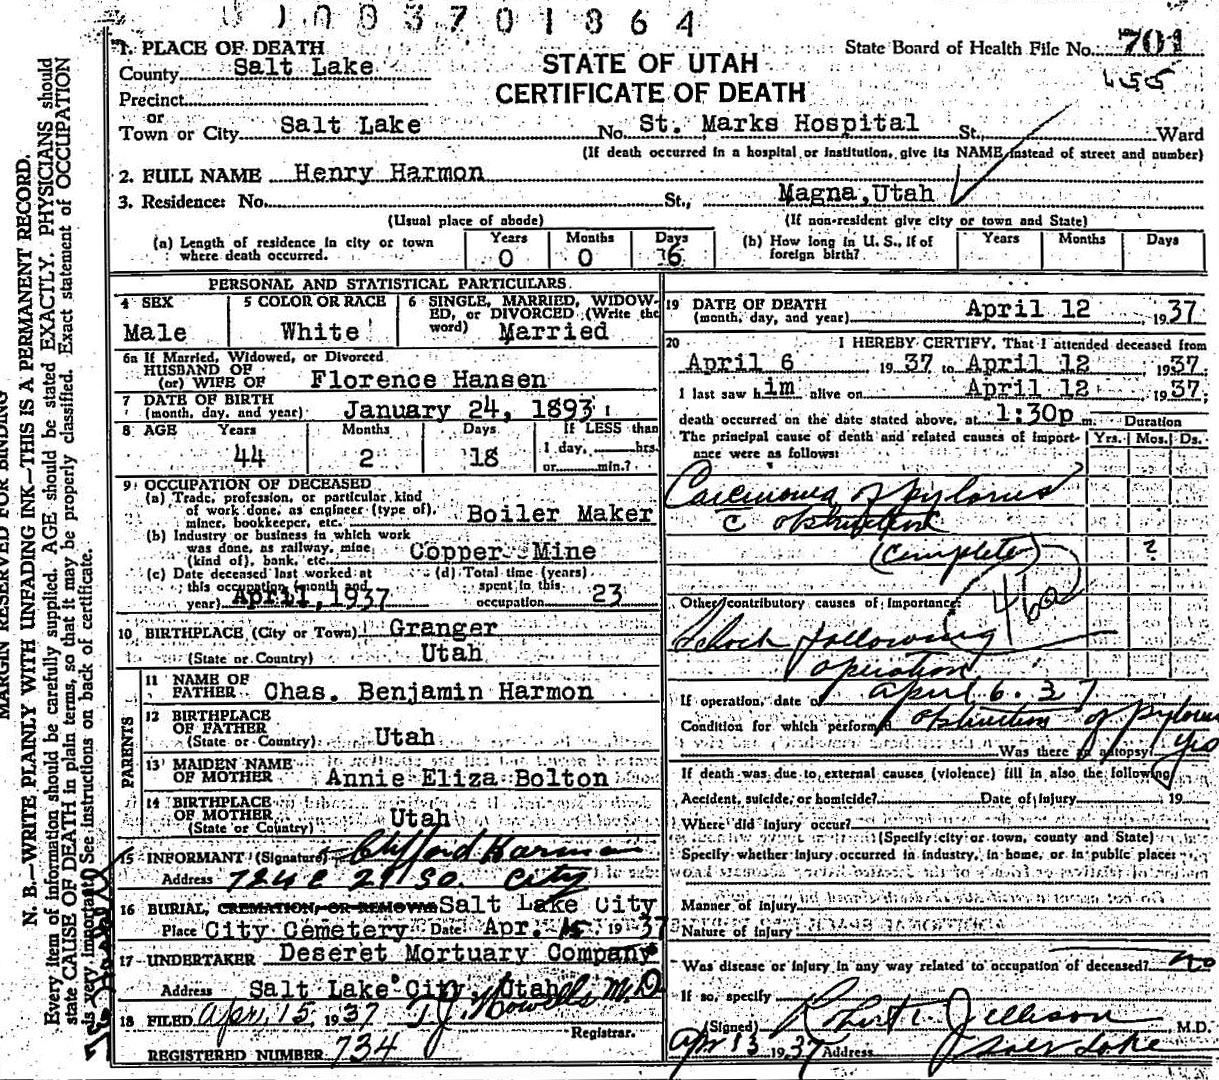 1003701864
1. PLACE OF DEATH
State Board of Health File No. 701
County Salt Lake
STATE OF UTAH
455
Precinct
CERTIFICATE OF DEATH
or
Town or City Salt Lake No. St. Marks Hospital St., Ward
(If death occurred in a hospital or institution, give its NAME instead of street and number)
2. FULL NAME Henry Harmon
3. Residence: No. St., Magna, Utah
(Usual place of abode) (If non-resident give city or town and State)
(a) Length of residence in city or town where death occurred. Years 0 Months 0 Days 6
(b) How long in U. S., if of foreign birth? Years Months Days
PERSONAL AND STATISTICAL PARTICULARS
4 SEX Male
5 COLOR OR RACE White
6 SINGLE, MARRIED, WIDOWED, or DIVORCED (Write the word) Married
6a If Married, Widowed, or Divorced
HUSBAND OF
(or) WIFE OF Florence Hansen
7 DATE OF BIRTH
(month, day, and year) January 24, 1893
8 AGE Years 44 Months 2 Days 18 If LESS than 1 day, hrs. or min.?
9 OCCUPATION OF DECEASED
(a) Trade, profession, or particular kind
of work done, as engineer (type of),
miner, bookkeeper, etc. Boiler Maker
(b) Industry or business in which work
was done, as railway, mine
(kind of), bank, etc. Copper Mine
(c) Date deceased last worked at
this occupation (month and
year) April, 1937
(d) Total time (years)
spent in this
occupation 23
10 BIRTHPLACE (City or Town) Granger
(State or Country) Utah
PARENTS
11 NAME OF
FATHER Chas. Benjamin Harmon
12 BIRTHPLACE
OF FATHER
(State or Country) Utah
13 MAIDEN NAME
OF MOTHER Annie Eliza Bolton
14 BIRTHPLACE
OF MOTHER
(State or Country) Utah
15 INFORMANT (Signature) Clifford Harman
Address 724 E 21 So. City
16 BURIAL, CREMATION, OR REMOVAL Salt Lake City
Place City Cemetery Date Apr. 15 1937
17 UNDERTAKER Deseret Mortuary Company
Address Salt Lake City, Utah
18 FILED Apr, 15, 1937 T.J. Howells M.D
Registrar.
REGISTERED NUMBER 734
19 DATE OF DEATH
(month, day, and year) April 12 1937
20 I HEREBY CERTIFY, That I attended deceased from
April 6 1937 to April 12, 1937
I last saw him alive on April 12 1937;
death occurred on the date stated above, at 1:30p m. Duration
The principal cause of death and related causes of importance were as follows: Yrs. Mos. Ds.
Carcinoma of pylorus
c obstruction
(complete) ?
Other contributory causes of importance:
460
Shock following
operation
If operation, date of April 6. 37
Condition for which performed obstruction of pylorus
Was there an autopsy? yes
If death was due to external causes (violence) fill in also the following
Accident, suicide, or homicide? Date of Injury 19
Where did injury occur?
(Specify city or town, county and State)
Specify whether injury occurred in industry, in home, or in public place:
Manner of injury
Nature of injury
Was disease or injury in any way related to occupation of deceased? no
If so, specify
(Signed) Robert T. Jellison M.D.
Apr 13 1937 Address Salt Lake
MARGIN RESERVED FOR BINDING
N. B.—WRITE PLAINLY WITH UNFADING INK—THIS IS A PERMANENT RECORD.
Every item of information should be carefully supplied. AGE should be stated EXACTLY. PHYSICIANS should
state CAUSE OF DEATH in plain terms, so that it may be properly classified. Exact statement of OCCUPATION
is very important. See instructions on back of certificate.